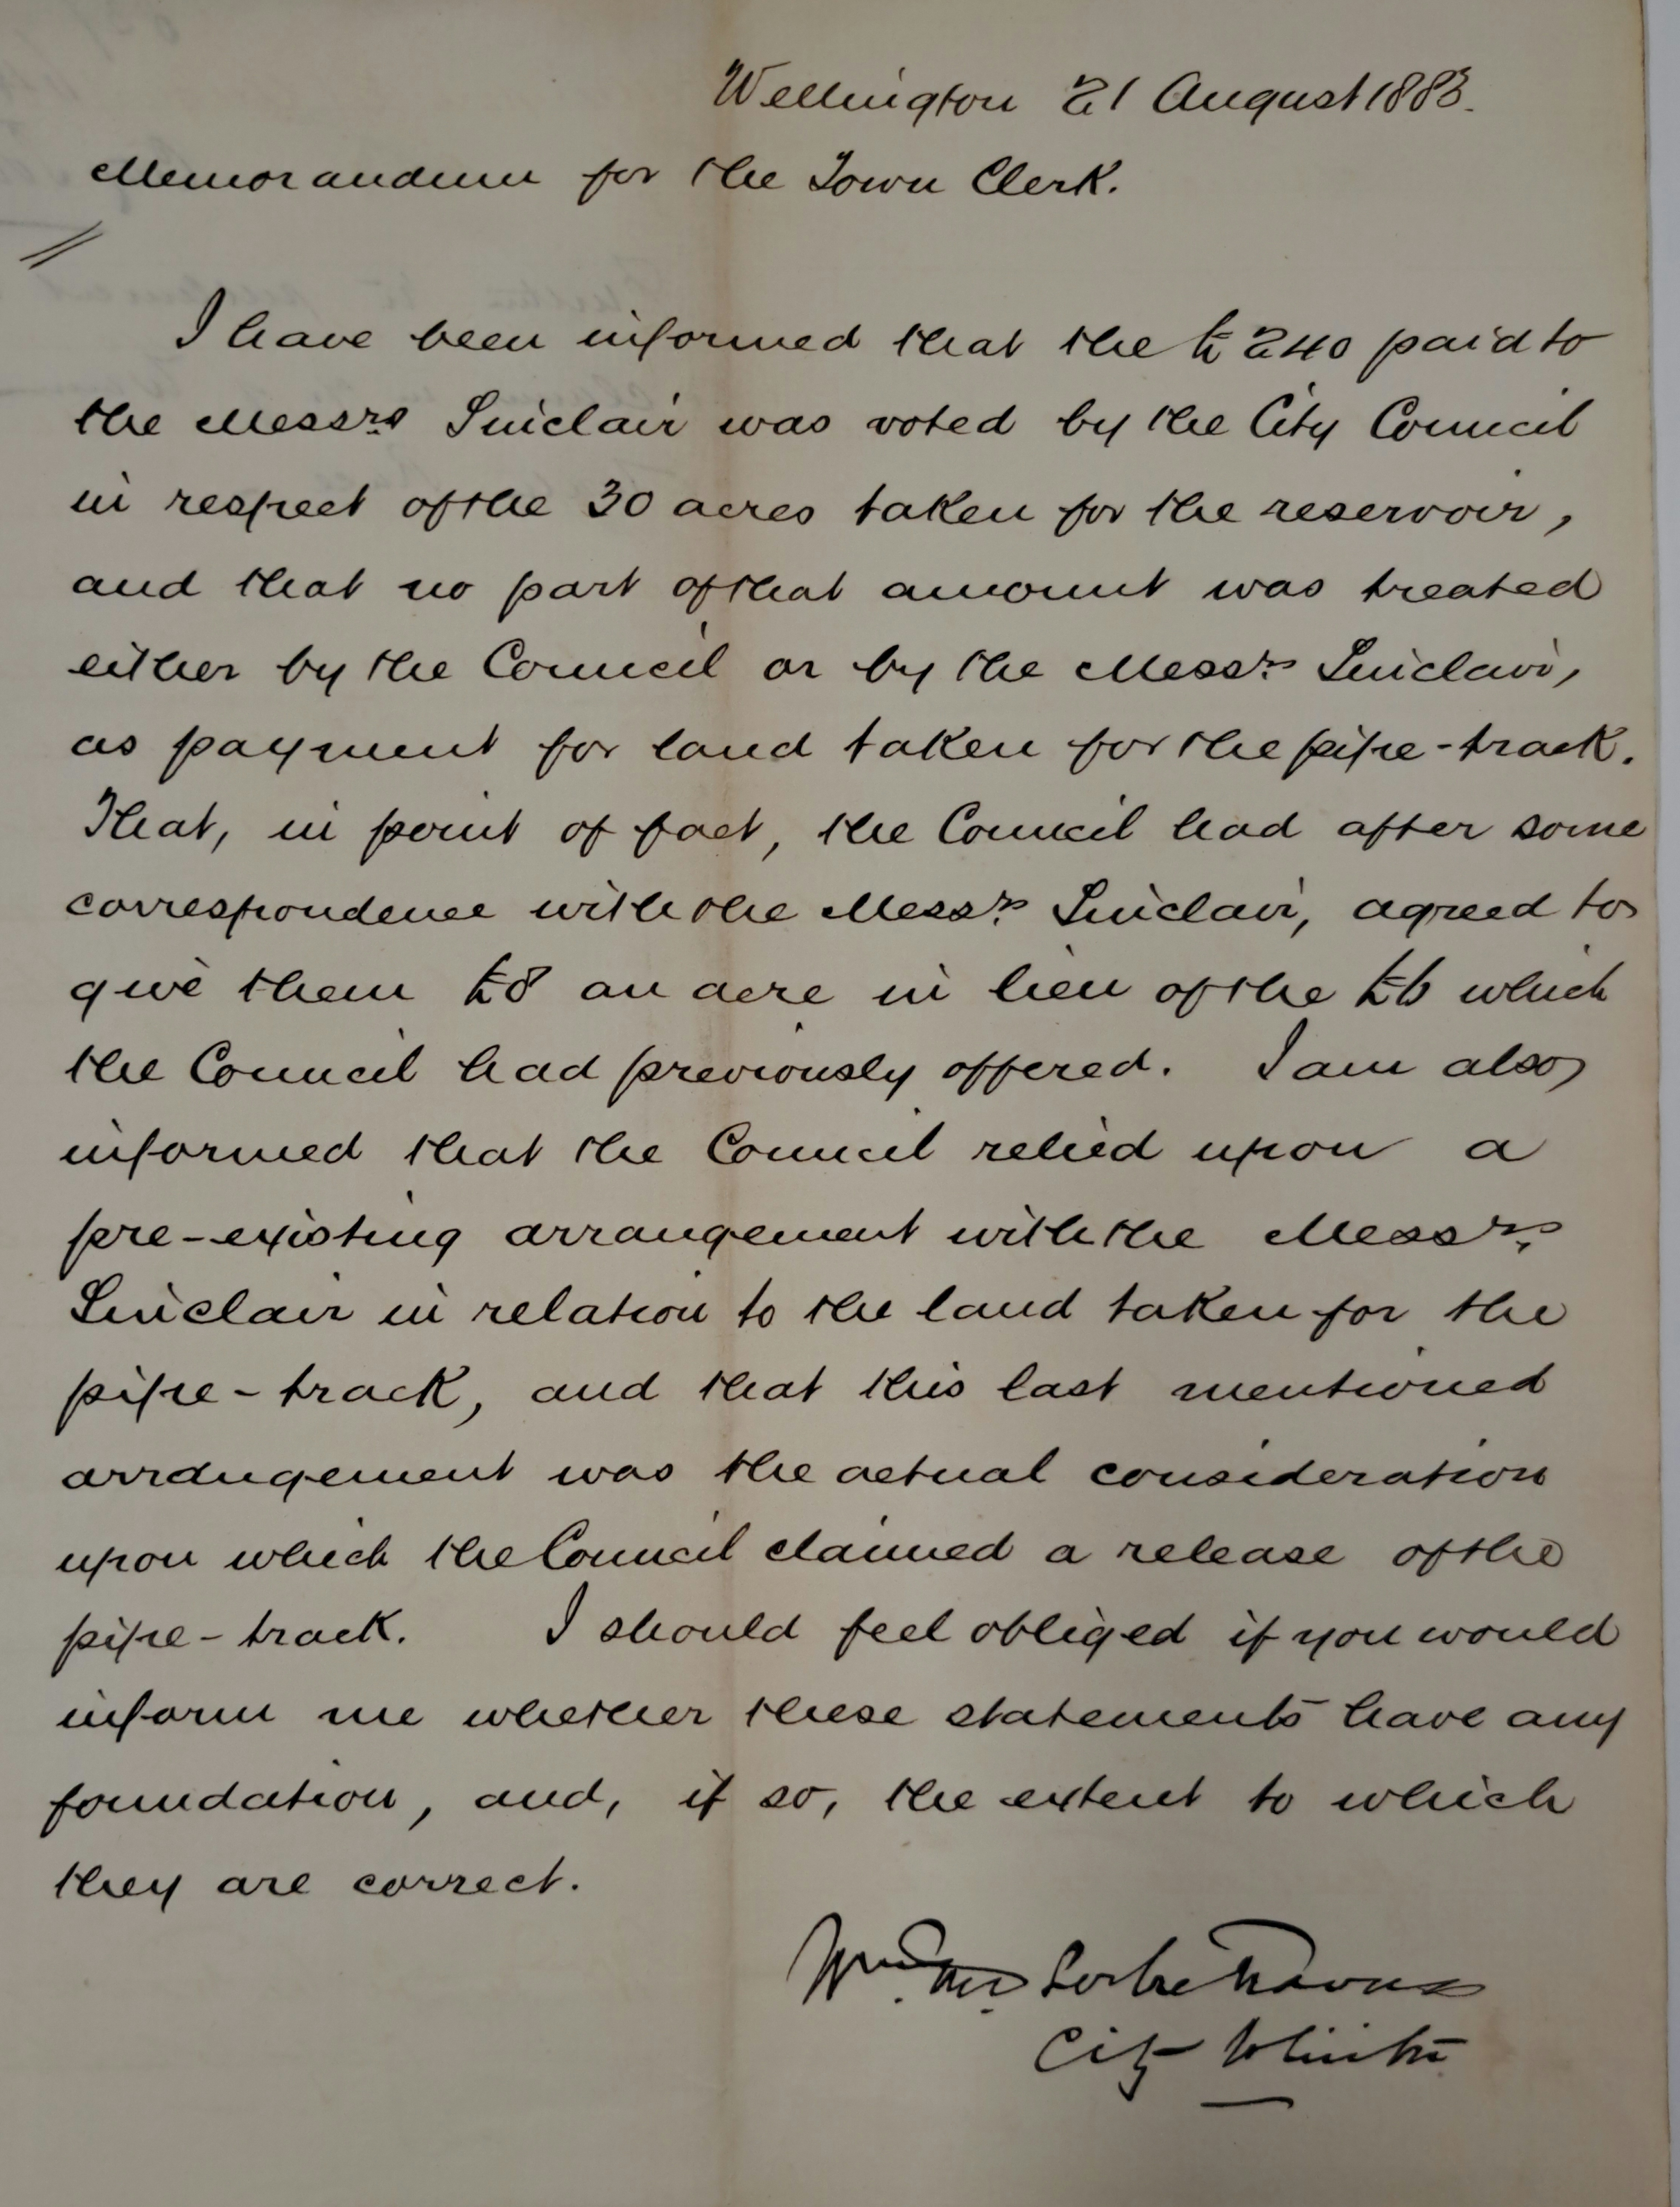 Wellington 21 August 1883.
Memorandum for the Town Clerk.
I have been informed that the £240 paid to
the Messrs Sinclair was voted by the City Council
in respect of the 30 acres taken for the reservoir,
and that no part of that amount was treated
either by the Council or by the Messrs Sinclair,
as payment for land taken for the pipe-track.
That, in point of fact, the Council had after some
correspondence with the Messrs Sinclair, agreed to
give them £8 an acre in lieu of the £6 which
the Council had previously offered. I am also
informed that the Council relied upon a
pre-existing arrangement with the Messrs
Sinclair in relation to the land taken for the
pipe-track, and that this last mentioned
arrangement was the actual consideration
upon which the Council claimed a release of the
pipe-track. I should feel obliged if you would
inform me whether these statements have any
foundation, and, if so, the extent to which
they are correct.
Wm. Thos. Locke Travers
City Solicitor